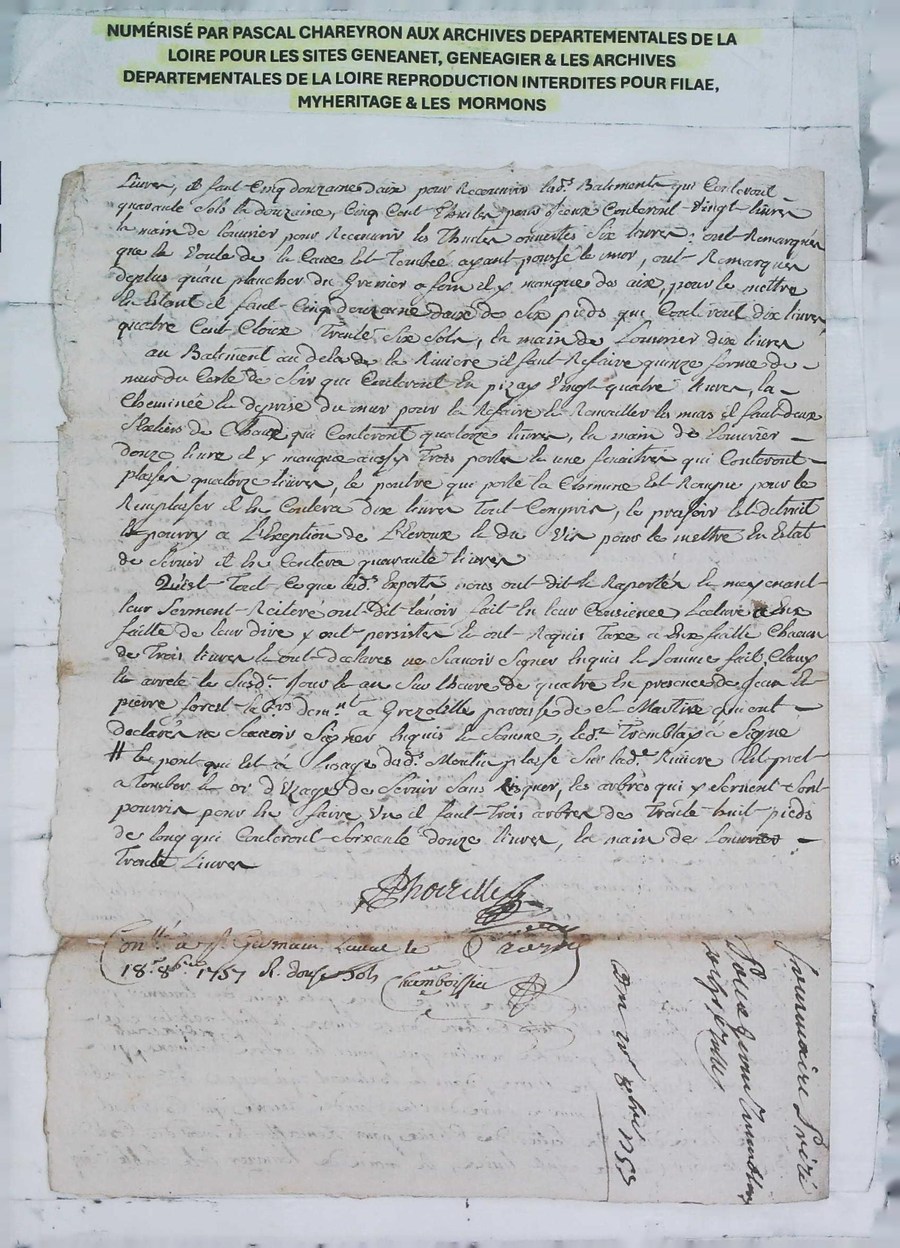 NUMÉRISÉ PAR PASCAL CHAREYRON AUX ARCHIVES DEPARTEMENTALES DE LA
LOIRE POUR LES SITES GENEANET, GENEAGIER & LES ARCHIVES
DEPARTEMENTALES DE LA LOIRE REPRODUCTION INTERDITES POUR FILAE,
MYHERITAGE & LES MORMONS
Livres, il faut Cinq douzaine d'aix pour Recouvrir lad.s Batements qui Couteront
quarante Sols la douzaine, Cinq Cent Thuiles pour Couteront Vingt livres
la main de louvrier pour Recouvrir les Thuiles Six livres; ont Remarqués
que la Voute de la Cave Est Tombée ayant poussé le mur, ont Remarqués
deplus qu'au plancher du Grenier a foin il y manque des aix, pour le mettre
En Estat il faut Cinq douzaine d'aix de Six pieds qui Couteront dix livres
quatre Cent Cloux Trente Six Sols, la main de Louvrier dix livres
au Batement au dela de la Riviere il faut Refaire quinze forme de
mur du Coste de Soir qui Couteront En pizay Vingt quatre livres, la
Cheminée du mur pour la Refaire les murs il faut deux
de Chaux qui Couteront quatorze livres, la main de Louvrier
douze livre il y manque aussy Trois portes & une fenaitre qui Couteront
plassés quatorze livres, le poutre qui porte la Est Rompue pour le
Remplasser il En Coutera dix livres Tout Compris, le prasoir Est detruit
& pourry a L'Exeption de L'Ecroux & du Vis pour le mettre En Estat
de Servir il En Coutera quarante livres
Qu'est Tout Ce que led.s Experts nous ont dit & Raportés & moyenant
leur Serment Reiteré ont Dit l'avoir fait En leur Consience Lecture a Eux
faitte de leur dire y ont persistés & ont Requis Taxe a Eux faitte Chacun
de Trois livres & ont declarés ne Scavoir Signer Enquis & Somme fait, Claux
& arreté le Susd.t Jour & an Sur Lheure de quatre En presence de Jean &
pierre forest a Grezolette paroisse de St Martin qui ont
declarés ne Scavoir Signer Enquis & Somme, led.t Tremblay a Signé
# le pont qui Est a Lusage dud.t Moulin plassé Sur lad.e Riviere Est pret
a Tomber & de Servir Sans Risquer, les arbres qui y Servent Sont
pourris pour En faire Un il faut Trois arbres de Trente huit pieds
de long qui Couteront Soixante douze livres, la main de Louvrier
Trente Livres
Con.llé a St Germain Laval le
18.e 8bre 1757 R. douze Sols
Chamboissier
Sommaire Prisé
Du 10 8bre 1757